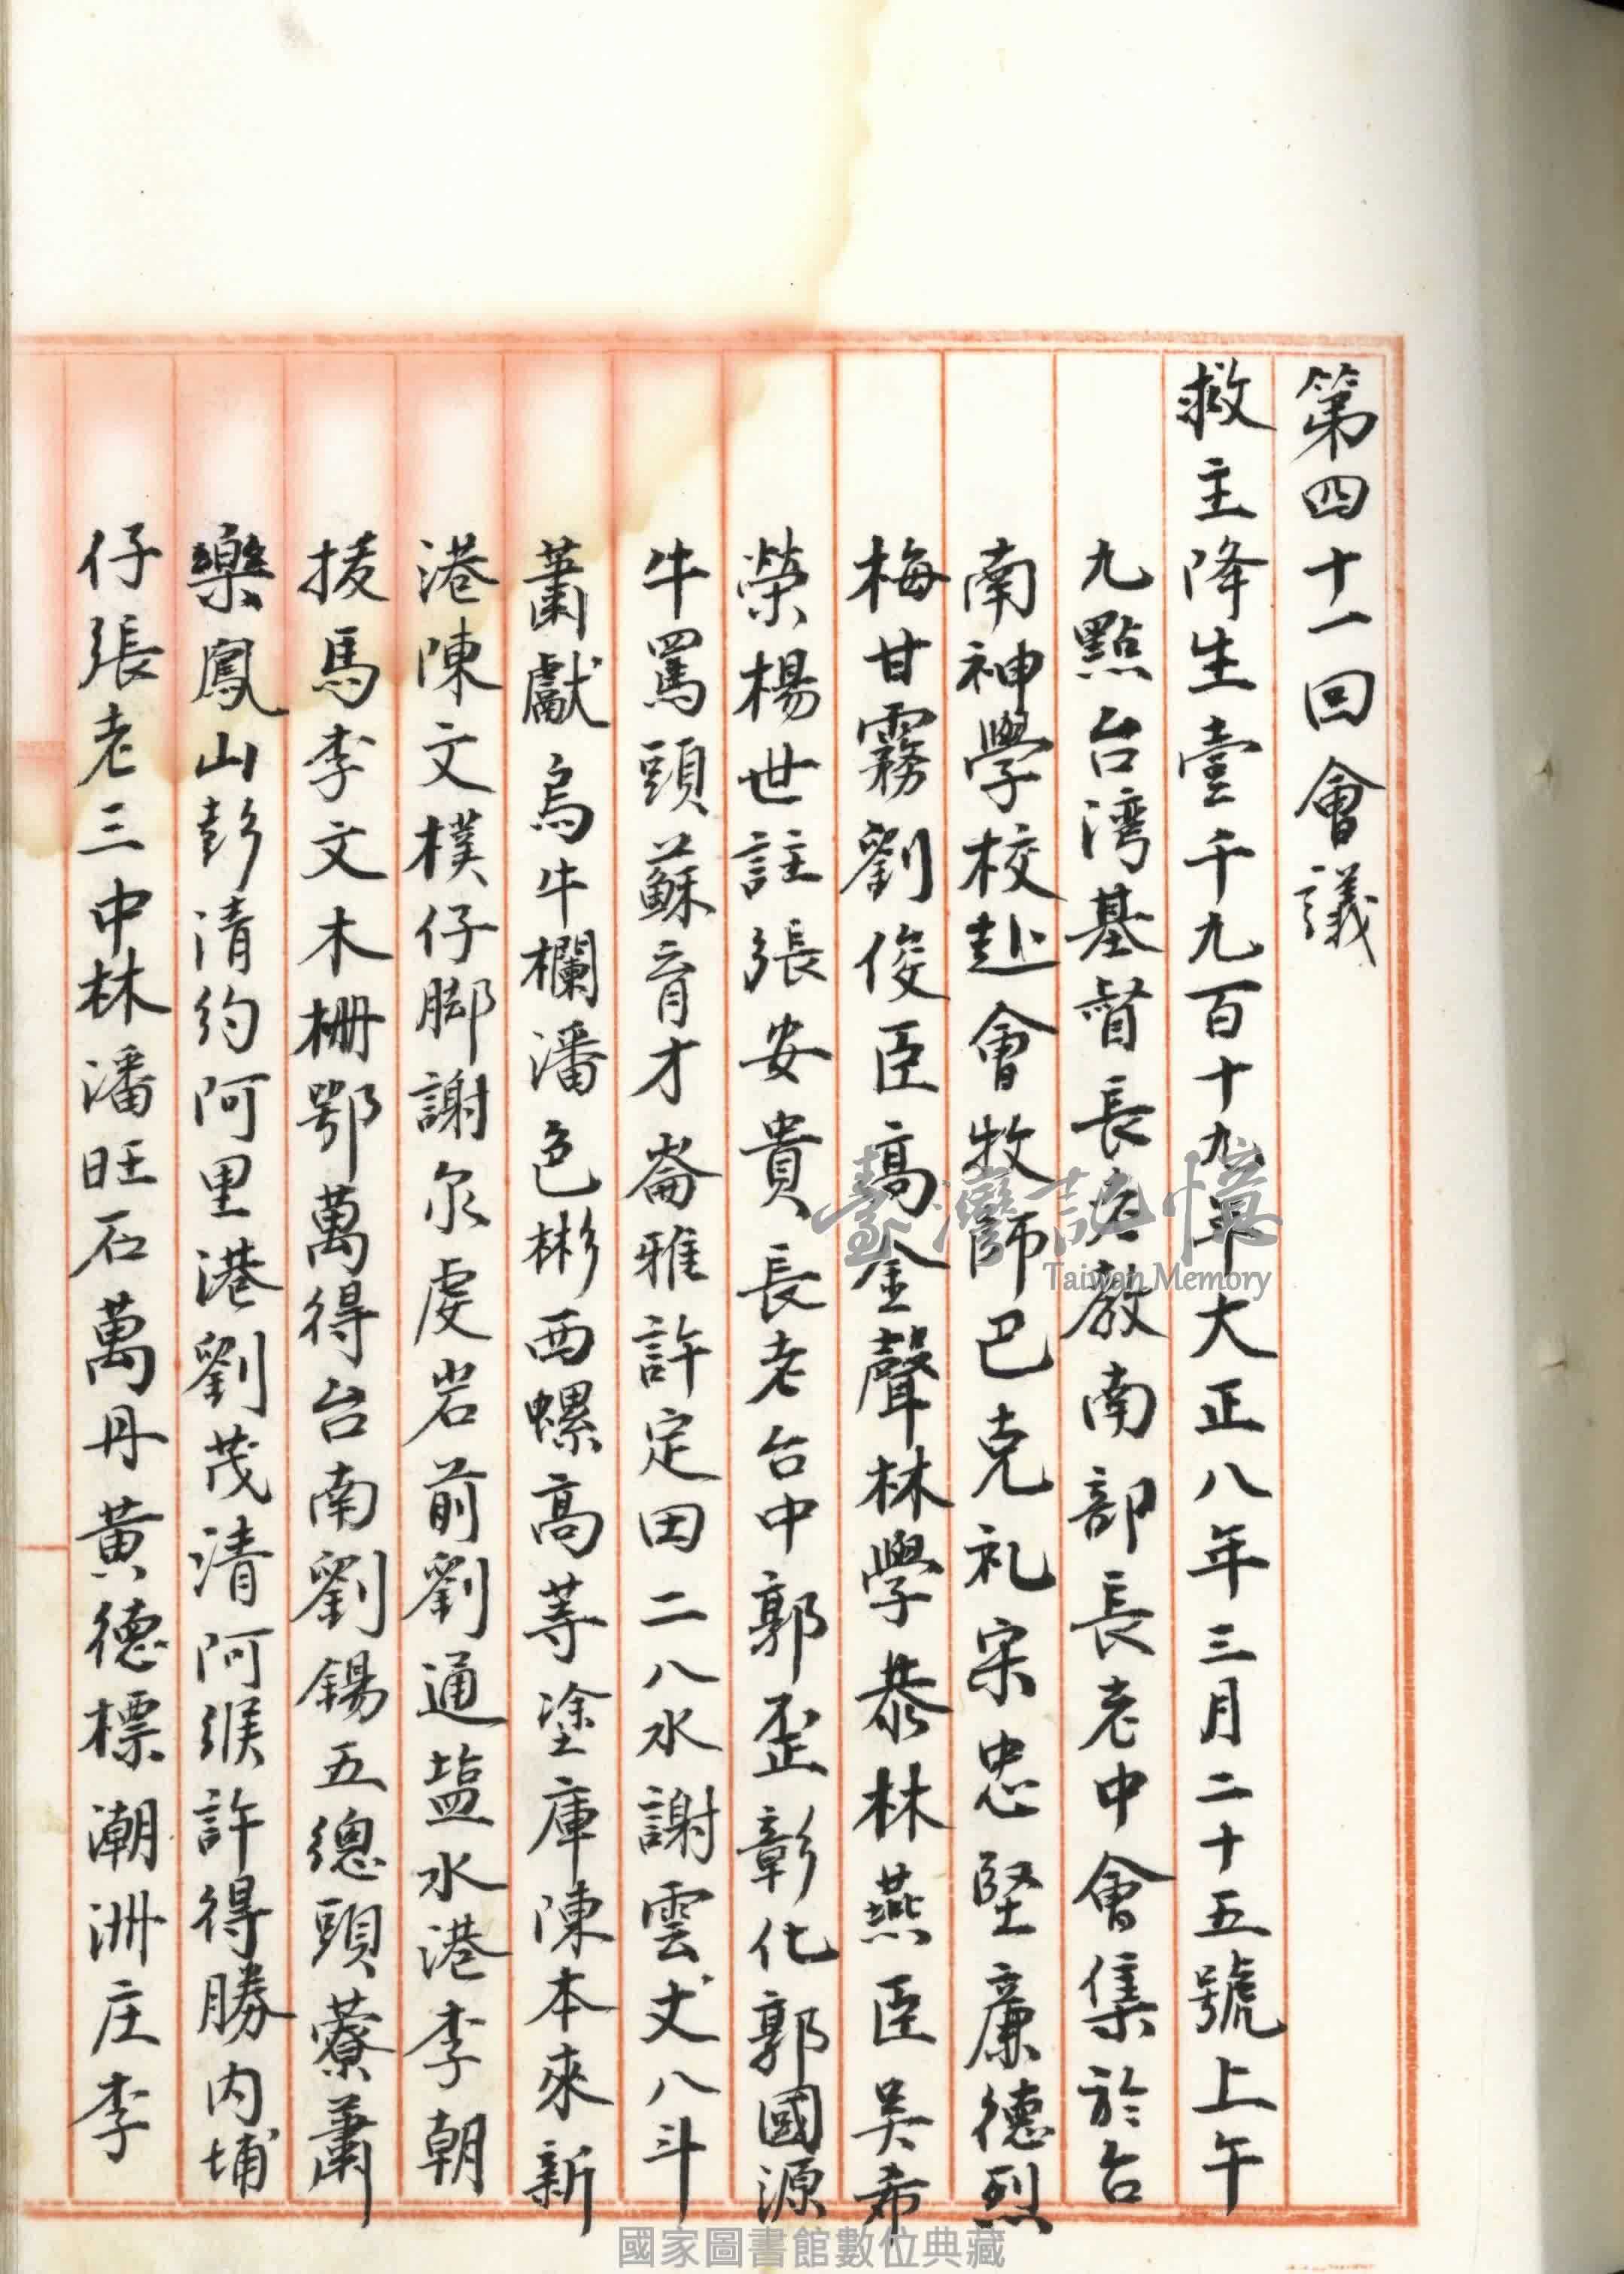 第四十一回會議
救主降生壹千九百十九年大正八年三月二十五號上午
九點台湾基督長老教南部長老中會集於台
南神學校赴會牧師巴克礼宋忠堅廉德烈
梅甘霧劉俊臣高金聲林學恭林燕臣吳希
榮楊世註張安貴長老台中郭歪彰化郭國源
牛罵頭蘇育才崙雅許定田二八水謝雲丈八斗
蕭獻烏牛欄潘色彬西螺高等塗庫陳本來新
港陳文樸仔脚謝尔虔岩前劉通盐水港李朝
援馬李文木柵鄂萬得台南劉錫五總頭藔蕭
樂鳳山彭清約阿里港劉茂清阿猴許得勝內埔
仔張老三中林潘旺石萬丹黄德標潮洲庄李
臺灣記憶
Taiwan Memory
國家圖書館數位典藏